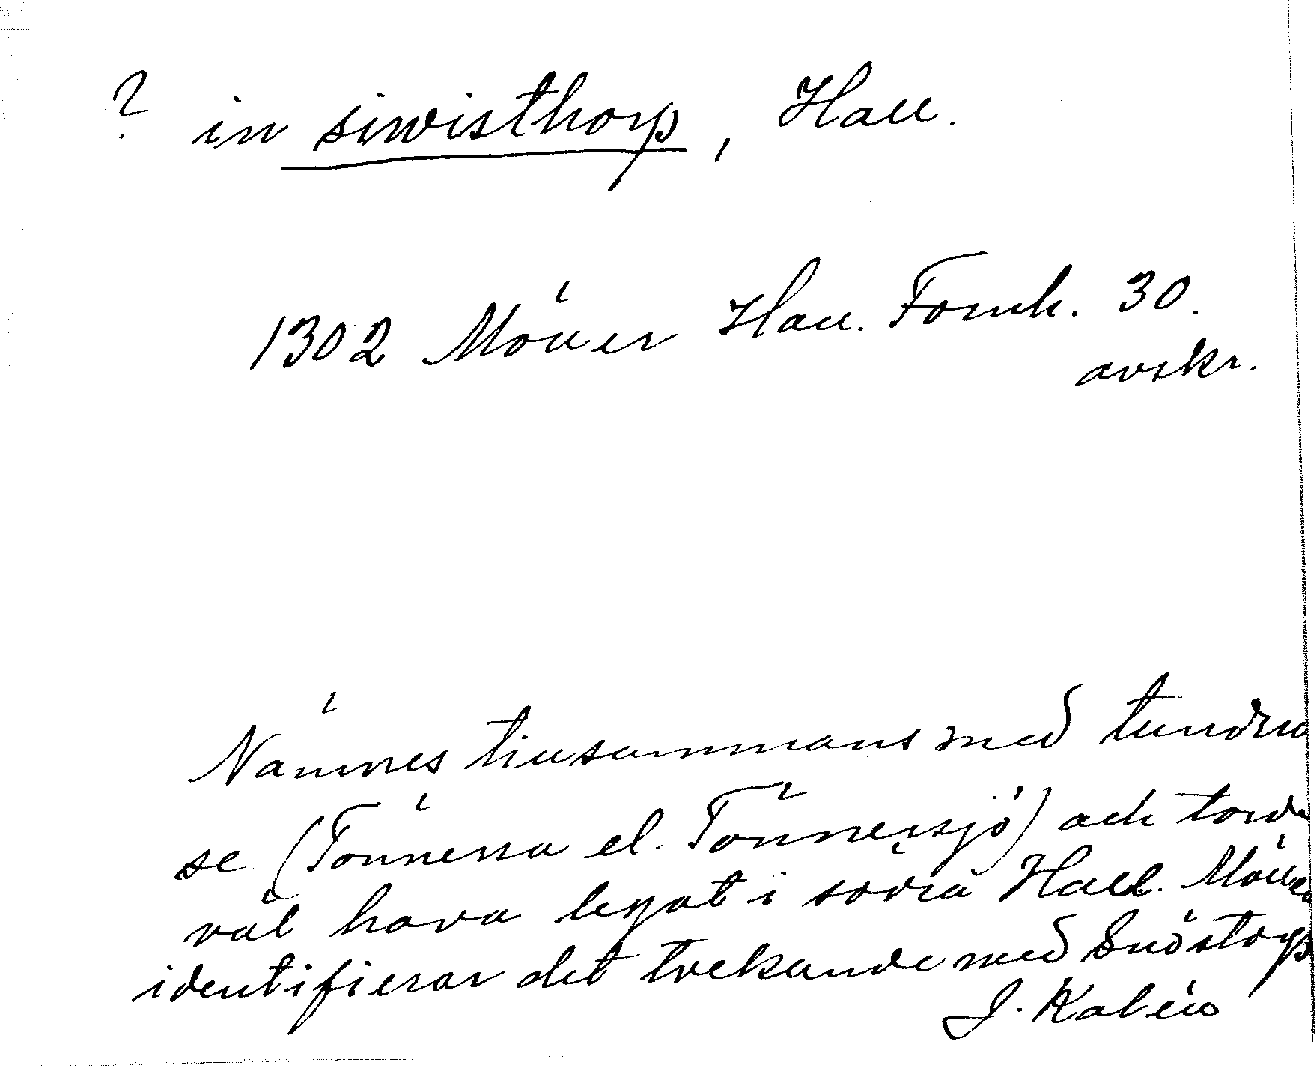 ? in siwisthorp, Hall.
1302 Möller Hall. Fornh. 30.
avskr.
Nämnes tillsammans med tundru
se (Tönnersa el. Tönnersjö) och torde
väl hava legat i södra Hall. Möller
identifierar det tvekande med Snöstorp
J. Kalén